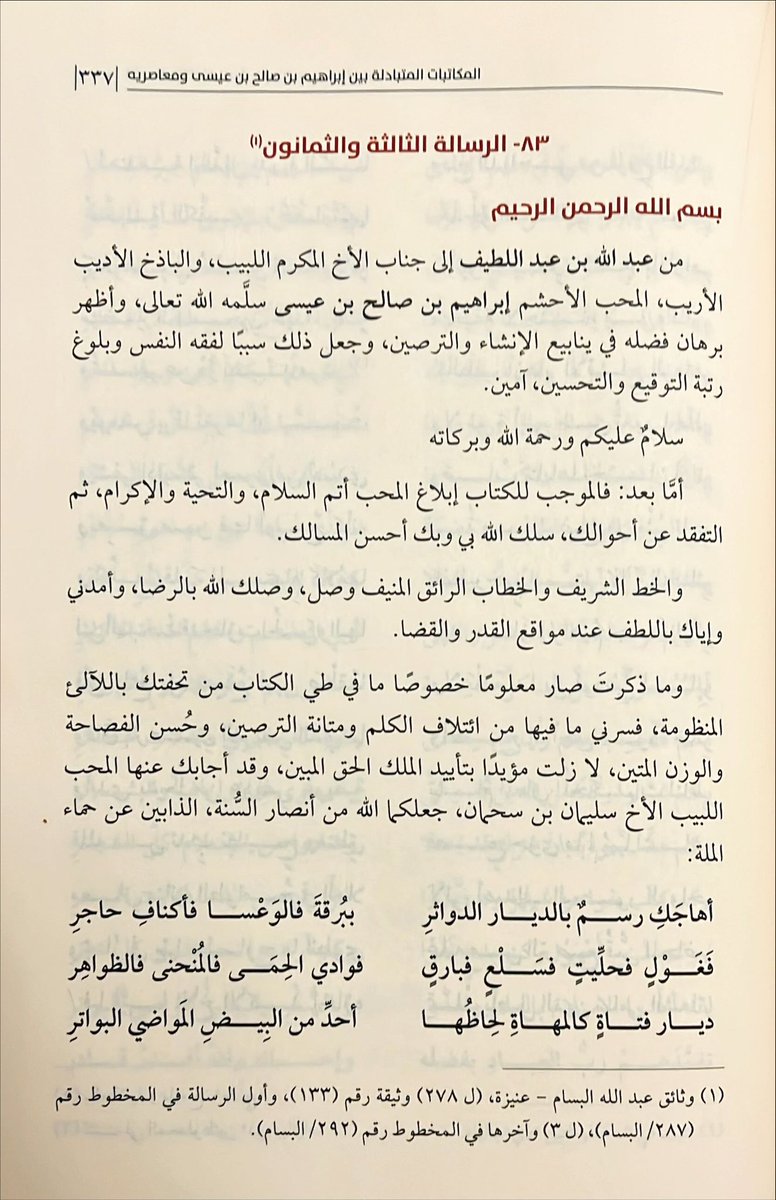 المكاتبات المتبادلة بين إبراهيم بن صالح بن عيسى ومعاصريه |٣٣٧|
٨٣- الرسالة الثالثة والثمانون(١)
بسم الله الرحمن الرحيم
من عبد الله بن عبد اللطيف إلى جناب الأخ المكرم اللبيب، والباذخ الأديب
الأريب، المحب الأحشم إبراهيم بن صالح بن عيسى سلَّمه الله تعالى، وأظهر
برهان فضله في ينابيع الإنشاء والترصين، وجعل ذلك سببًا لفقه النفس وبلوغ
رتبة التوقيع والتحسين، آمين.
سلامٌ عليكم ورحمة الله وبركاته
أمَّا بعد: فالموجب للكتاب إبلاغ المحب أتم السلام، والتحية والإكرام، ثم
التفقد عن أحوالك، سلك الله بي وبك أحسن المسالك.
والخط الشريف والخطاب الرائق المنيف وصل، وصلك الله بالرضا، وأمدني
وإياك باللطف عند مواقع القدر والقضا.
وما ذكرتَ صار معلومًا خصوصًا ما في طي الكتاب من تحفتك باللآلئ
المنظومة، فسرني ما فيها من ائتلاف الكلم ومتانة الترصين، وحُسن الفصاحة
والوزن المتين، لا زلت مؤيدًا بتأييد الملك الحق المبين، وقد أجابك عنها المحب
اللبيب الأخ سليمان بن سحمان، جعلكما الله من أنصار السُّنة، الذابين عن حماء
الملة:
أهاجَكِ رســـمٌ بالديـــار الدواثرِ ببُرقةَ فالوَعْســـا فأكنافِ حاجرِ
فَغَـــوْلٍ فحلِّيتٍ فسَـــلْعٍ فبارقٍ فوادي الحِمَـــى فالمُنْحنى فالظواهِر
ديـــار فتـــاةٍ كالمهـــاةِ لِحاظُهـــا أحدِّ من البِيـــضِ المَواضي البواترِ
(١) وثائق عبد الله البسام – عنيزة، (ل ٢٧٨) وثيقة رقم (١٣٣)، وأول الرسالة في المخطوط رقم
(٢٨٧/ البسام)، (ل ٣) وآخرها في المخطوط رقم (٢٩٢/ البسام).